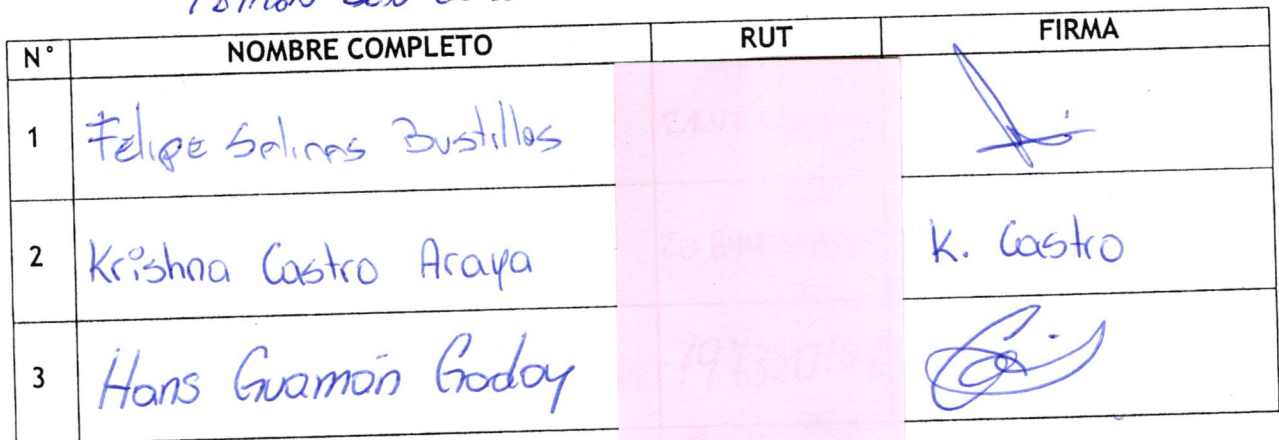 N° NOMBRE COMPLETO RUT FIRMA
1 Felipe Salinas Bustillos
2 Krishna Castro Araya K. Castro
3 Hans Guamán Godoy